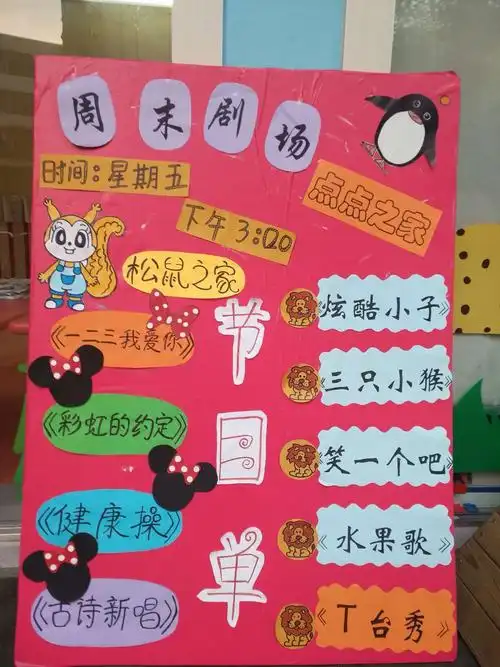 周末剧场
时间：星期五
下午3:00
点点之家
松鼠之家
节目单
《一二三我爱你》
《彩虹的约定》
《健康操》
《古诗新唱》
《炫酷小子》
《三只小猴》
《笑一个吧》
《水果歌》
《T台秀》